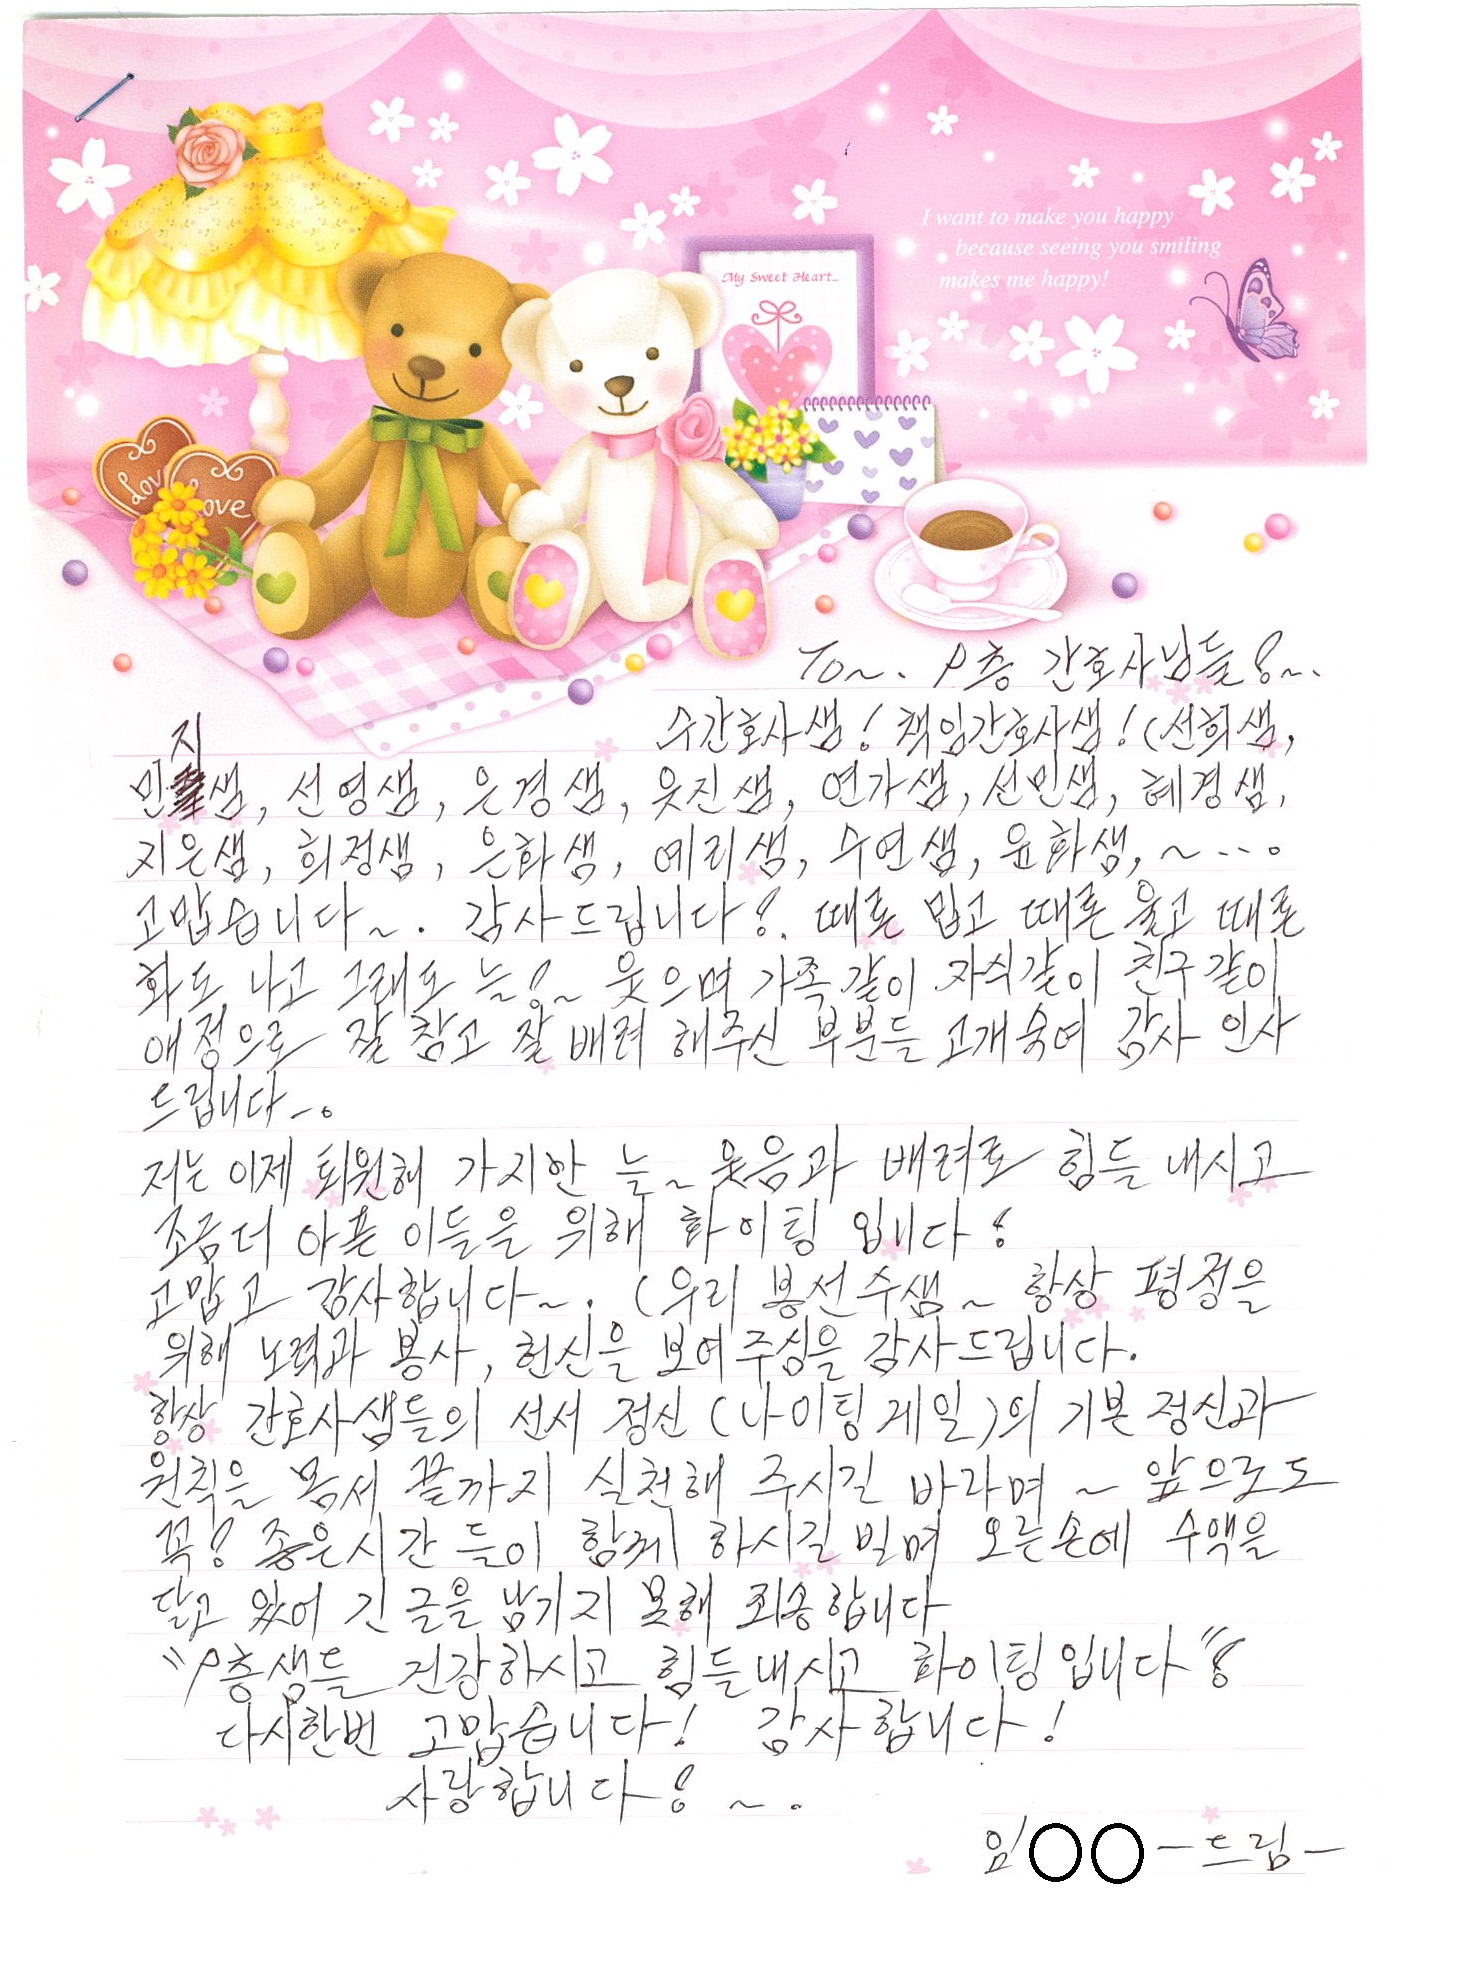 I want to make you happy
because seeing you smiling
makes me happy!
My Sweet Heart..
Love
Love
To~. 9층 간호사님들!~.
수간호사샘! 책임간호사샘! (선희샘,
민지샘, 선영샘, 은경샘, 웃진샘, 연가샘, 선민샘, 혜경샘,
지은샘, 희정샘, 은화샘, 예리샘, 수연샘, 윤화샘, ~...
고맙습니다~. 감사드립니다!. 때론 밉고 때론 울고 때론
화도 나고 그래도 늘!~ 웃으며 가족같이 자식같이 친구같이
애정으로 잘 참고 잘 배려 해주신 부분들 고개숙여 감사 인사
드립니다-.
저는 이제 퇴원해 가지만 늘~ 웃음과 배려로 힘들 내시고
조금더 아픈 이들을 위해 화이팅 입니다!
고맙고 감사합니다~. (우리 봉선수샘~ 항상 평정을
위해 노력과 봉사, 헌신을 보여주심을 감사드립니다.
항상 간호사샘들의 선서 정신 (나이팅게일)의 기본 정신과
원칙을 몸서 끝까지 실천해 주시길 바라며 ~ 앞으로도
꼭! 좋은시간 들이 함께 하시길 빌며 오른손에 수액을
달고 있어 긴 글을 남기지 못해 죄송합니다
"9층샘들 건강하시고 힘들내시고 화이팅입니다"!
다시한번 고맙습니다! 감사합니다!
사랑합니다! ~.
임○○ -드림-